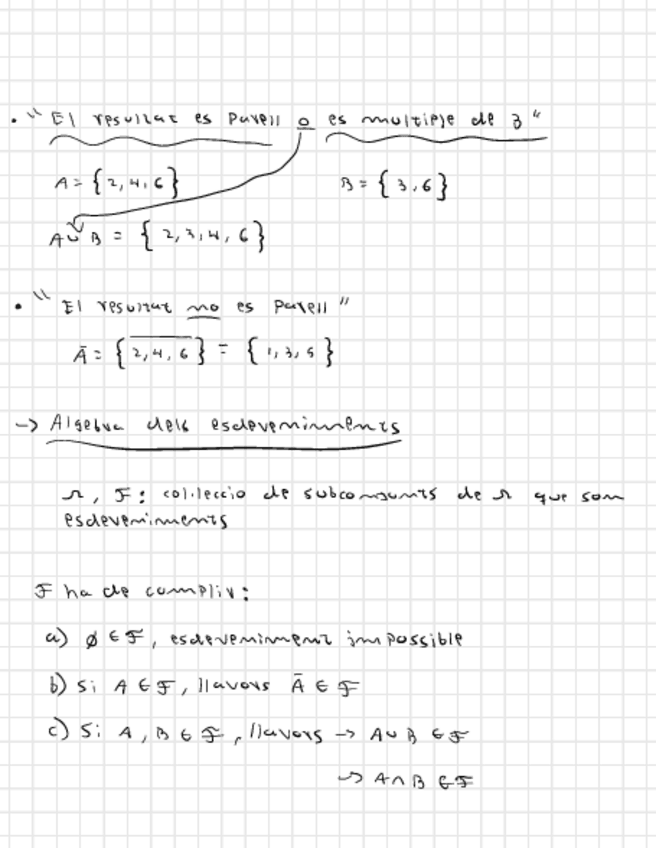 • "El resultat es parell o es multiple de 3"
A = {2,4,6} B = {3,6}
A∪B = {2,3,4,6}
• "El resultat no es parell"
Ā = {2,4,6}̅ = {1,3,5}
-> Algebra dels esdeveniments
Ω, F: col·leccio de subconjunts de Ω que son
esdeveniments
F ha de complir:
a) ∅ ∈ F, esdeveniment impossible
b) Si A ∈ F, llavors Ā ∈ F
c) Si A, B ∈ F, llavors -> A∪B ∈ F
-> A∩B ∈ F